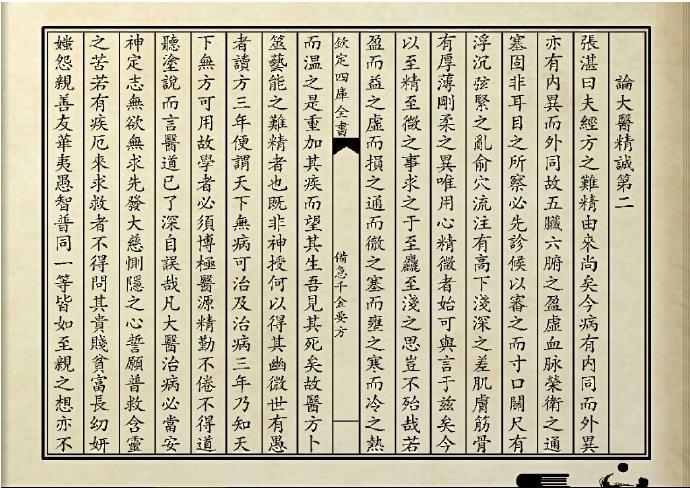 論大醫精誠第二
張湛曰夫經方之難精由來尚矣今病有內同而外異
亦有內異而外同故五臟六腑之盈虛血脉榮衛之通
塞固非耳目之所察必先診候以審之而寸口關尺有
浮沉弦緊之亂俞穴流注有高下淺深之差肌膚筋骨
有厚薄剛柔之異唯用心精微者始可與言于兹矣今
以至精至微之事求之于至麤至淺之思豈不殆哉若
盈而益之虛而損之通而徹之塞而壅之寒而冷之熱
欽定四庫全書
備急千金要方
而温之是重加其疾而望其生吾見其死矣故醫方卜
筮藝能之難精者也既非神授何以得其幽微世有愚
者讀方三年便謂天下無病可治及治病三年乃知天
下無方可用故學者必須博極醫源精勤不倦不得道
聽塗說而言醫道已了深自誤哉凡大醫治病必當安
神定志無欲無求先發大慈惻隱之心誓願普救含靈
之苦若有疾厄來求救者不得問其貴賤貧富長幼妍
媸怨親善友華夷愚智普同一等皆如至親之想亦不